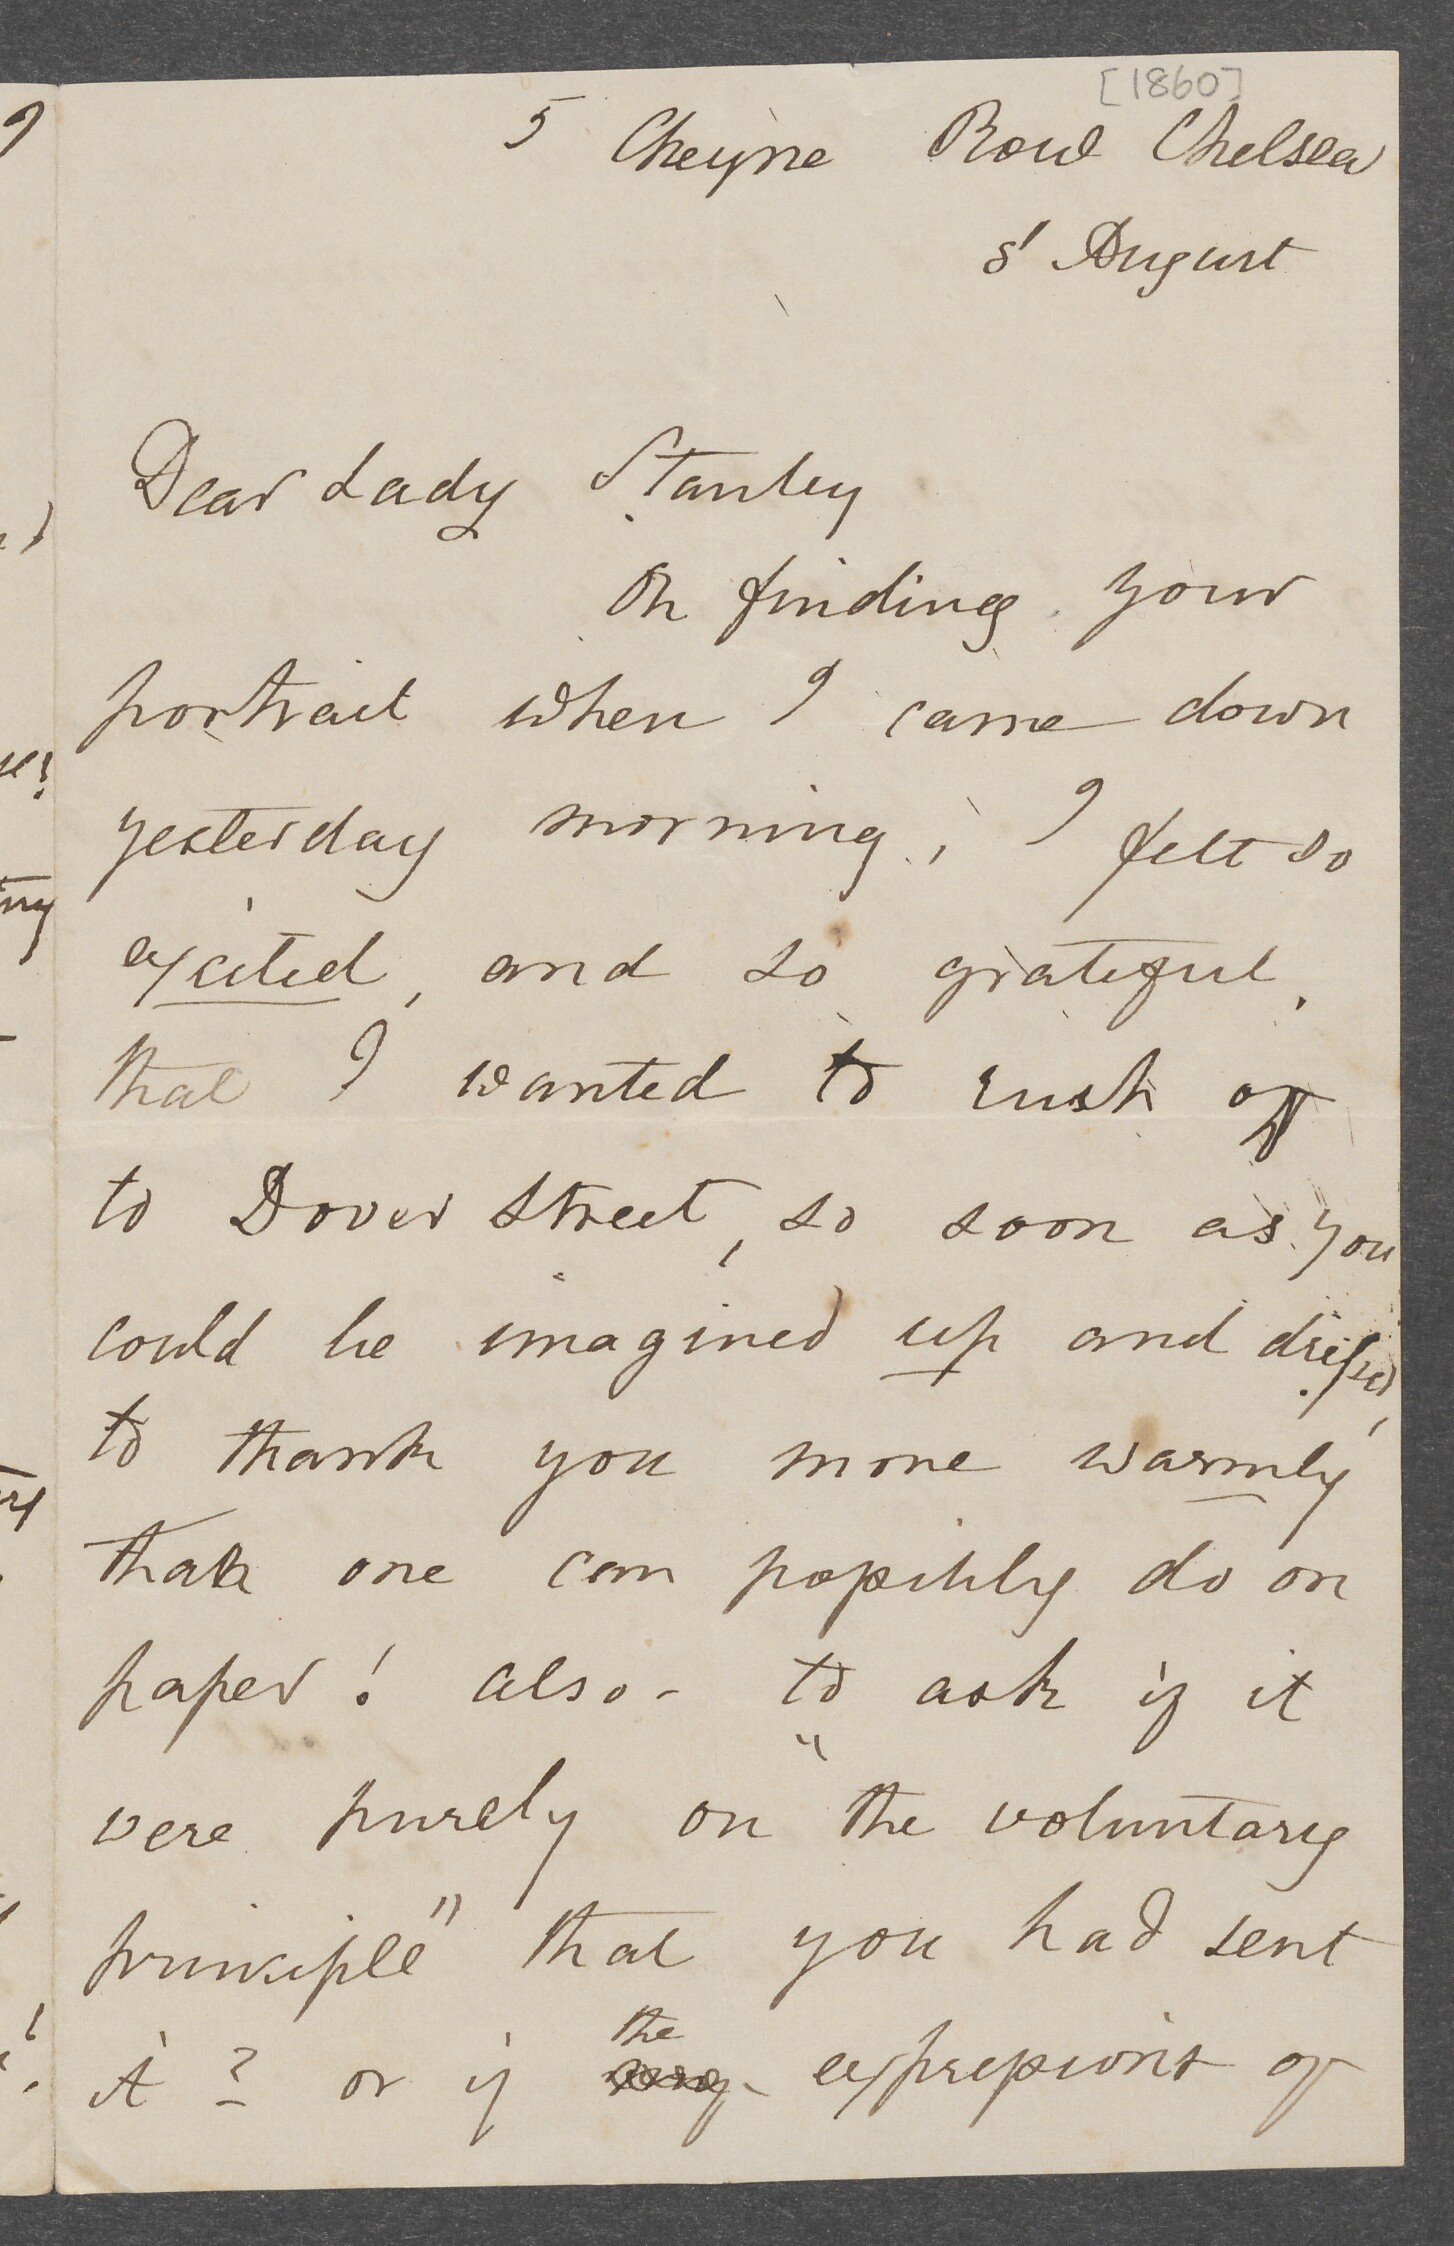 [1860]
5 Cheyne Row Chelsea
8' August
Dear Lady Stanley
On finding your
portrait when I came down
yesterday morning, I felt so
excited, and so grateful,
that I wanted to rush off
to Dover Street, so soon as you
could be imagined up and dressed,
to thank you more warmly
than one can possibly do on
paper! also- to ask if it
were purely on "the voluntary
principle" that you had sent
it? or if the expressions of